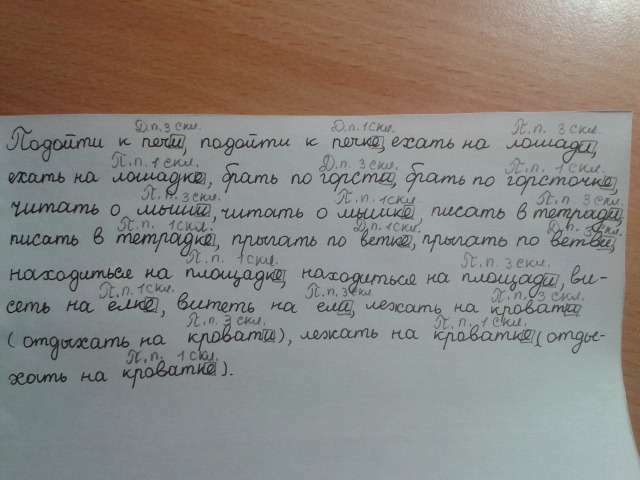 Д.п. 3 скл. Д.п. 1 скл. П.п. 3 скл.
Подойти к печи, подойти к печке, ехать на лошади,
П.п. 1 скл. Д.п. 3 скл. П.п. 1 скл.
ехать на лошадке, брать по горсти, брать по горсточке,
П.п. 3 скл. П.п. 1 скл. П.п. 3 скл.
читать о мыши, читать о мышке, писать в тетради,
П.п. 1 скл. Д.п. 1 скл. Д.п. 3 скл.
писать в тетрадке, прыгать по ветке, прыгать по ветви,
П.п. 1 скл. П.п. 3 скл.
находиться на площадке, находиться на площади, ви-
П.п. 1 скл. П.п. 3 скл. П.п. 3 скл.
сеть на елке, витеть на ели, лежать на кровати
П.п. 3 скл. П.п. 1 скл.
(отдыхать на кровати), лежать на кроватке (отды-
П.п. 1 скл.
хать на кроватке).